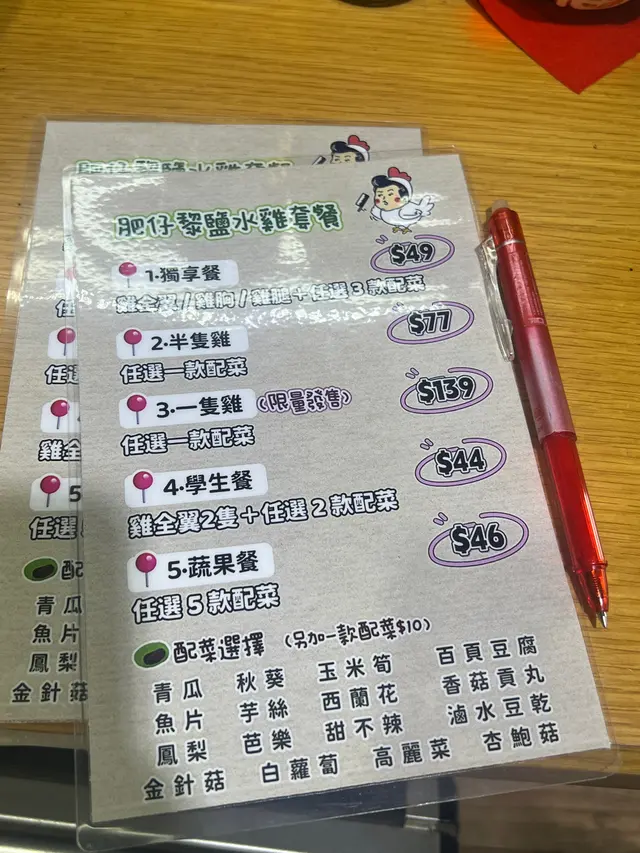 肥仔黎鹽水雞套餐
1·獨享餐 $49
雞全翼/雞胸/雞腿+任選3款配菜
2·半隻雞 $77
任選一款配菜
3·一隻雞(限量發售) $139
任選一款配菜
4·學生餐 $44
雞全翼2隻+任選2款配菜
5·蔬果餐 $46
任選5款配菜
配菜選擇 (另加一款配菜$10)
青瓜 秋葵 玉米筍 百頁豆腐
魚片 芋絲 西蘭花 香菇貢丸
鳳梨 芭樂 甜不辣 滷水豆乾
金針菇 白蘿蔔 高麗菜 杏鮑菇
任
任
雞全
5
任選
配
青瓜
魚片
鳳梨
金針菇